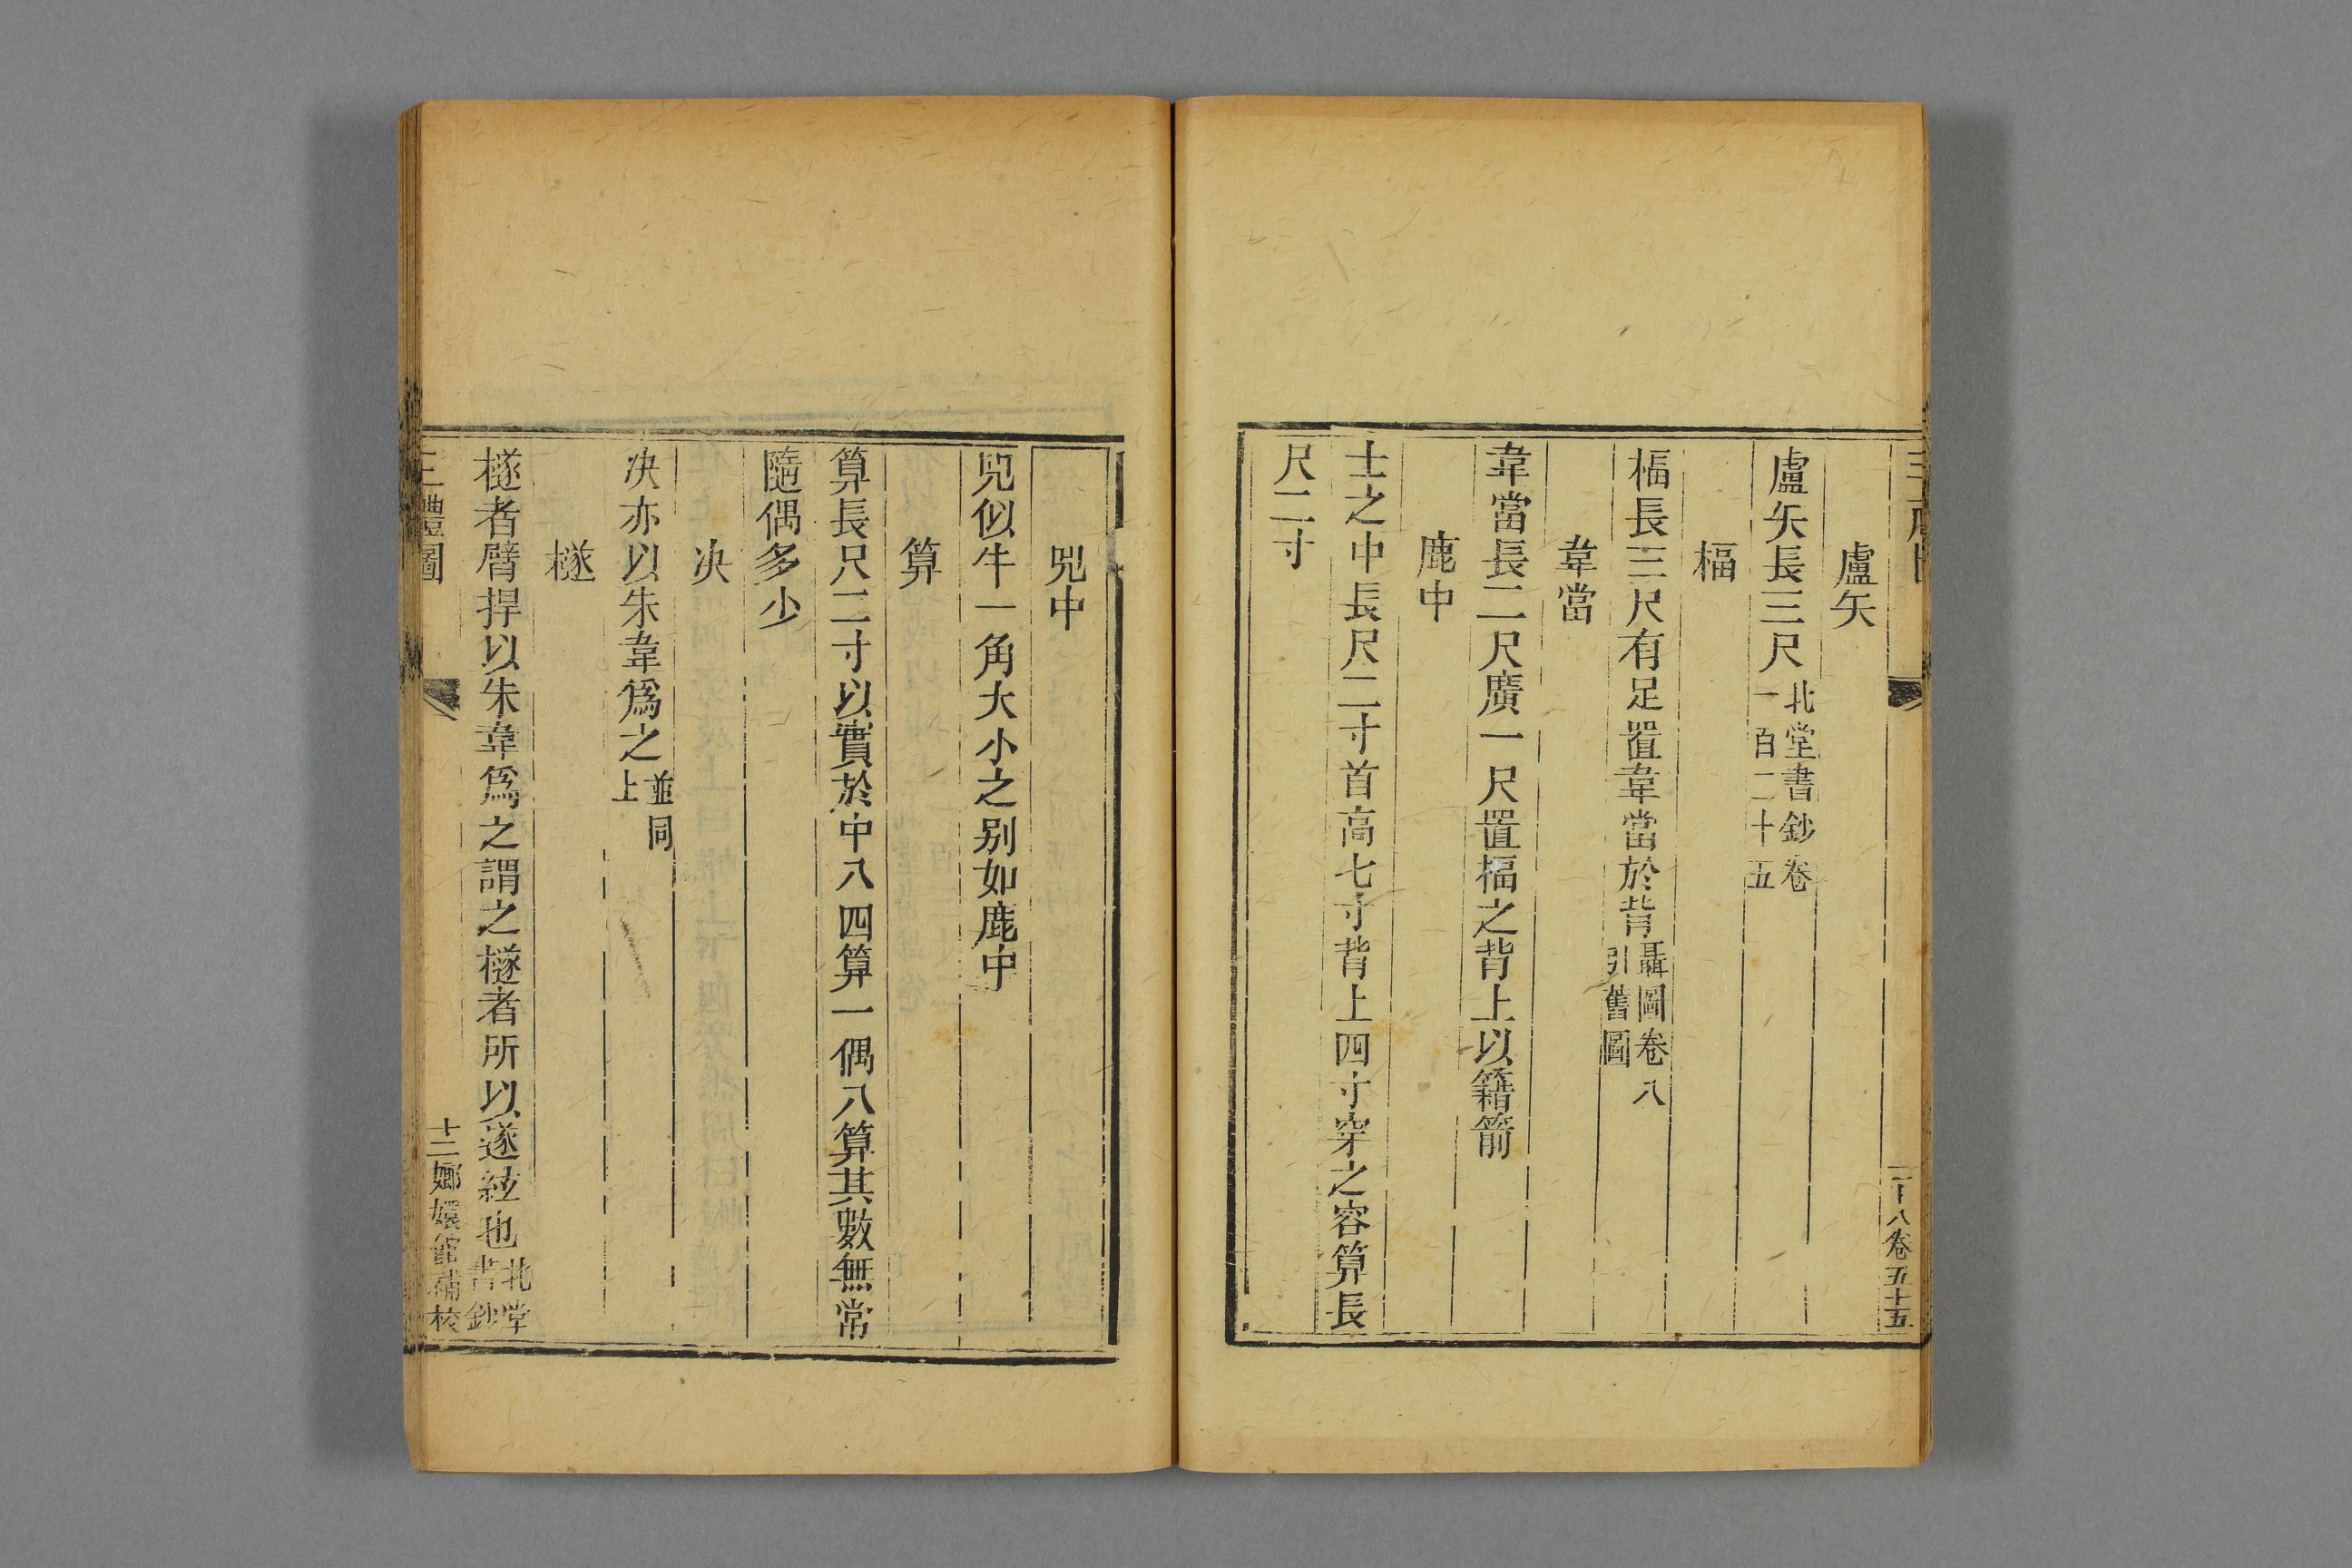 盧矢
盧矢長三尺北堂書鈔卷一百二十五
楅
楅長三尺有足置韋當於背聶圖卷八引舊圖
韋當
韋當長二尺廣一尺置楅之背上以籍箭
鹿中
士之中長尺二寸首高七寸背上四寸穿之容算長
尺二寸
二十八卷五十五
兕中
兕似牛一角大小之别如鹿中
算
算長尺二寸以實於中八四算一偶八算其數無常
隨偶多少
决
决亦以朱韋爲之並同上
檖
檖者臂捍以朱韋爲之謂之檖者所以遂紘也北堂書鈔
三禮圖
十二嫏嬛館補校